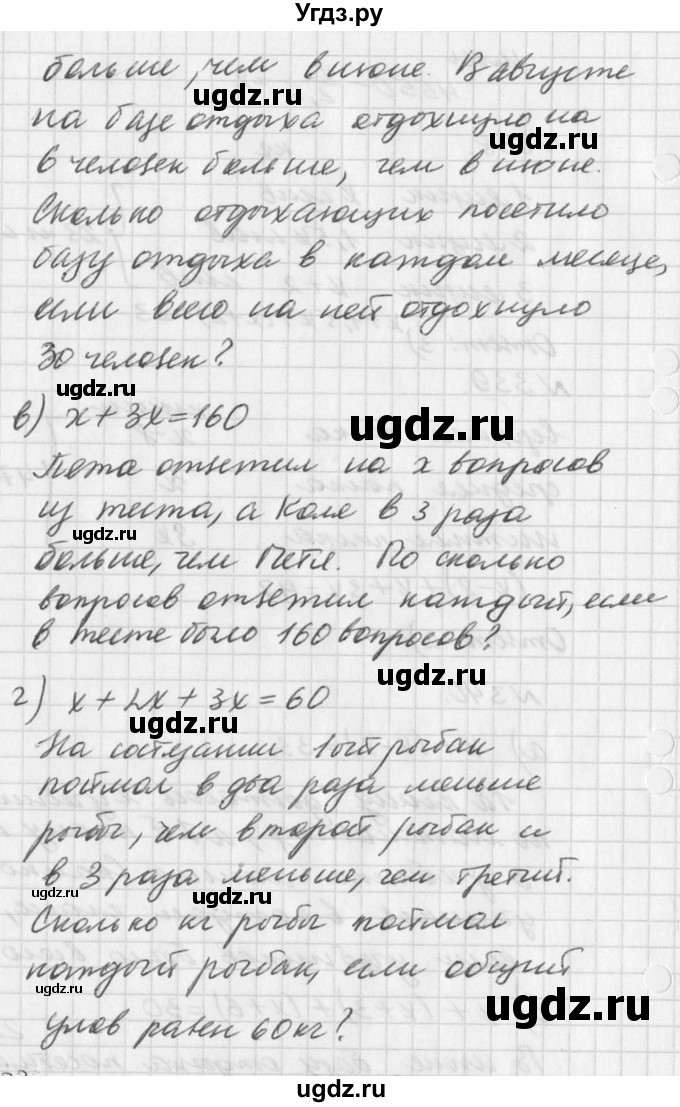 Угдз.ру
больше, чем в июне. В августе
на базе отдыха отдохнуло на
6 человек больше, чем в июне.
Сколько отдыхающих посетило
базу отдыха в каждом месяце,
если всего на ней отдохнуло
30 человек?
в) x + 3x = 160
Петя ответил на x вопросов
из теста, а Коля в 3 раза
больше, чем Петя. По сколько
вопросов ответил каждый, если
в тесте было 160 вопросов?
г) x + 2x + 3x = 60
На состязании 1ый рыбак
поймал в два раза меньше
рыбы, чем второй рыбак и
в 3 раза меньше, чем третий.
Сколько кг рыбы поймал
каждый рыбак, если общий
улов равен 60 кг?
ugdz.ru